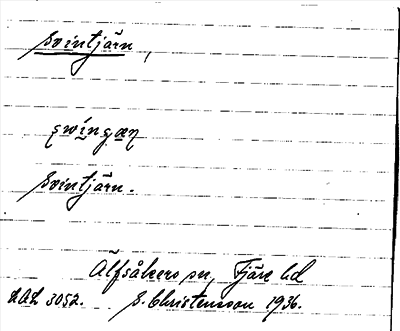 svintjärn,
svintjärn.
Älfsåkers sn, Fjäre hd
LAL 3052. S. Christensson 1936.